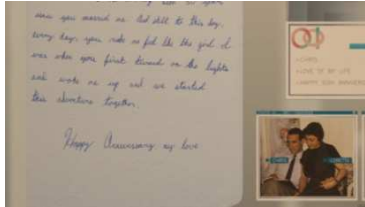 since you married me. And still to this day,
every day, you make me feel like the girl I
was when you first turned on the lights
and woke me up and we started
this adventure together.
Happy Anniversary my love
CHRIS
LOVE OF MY LIFE